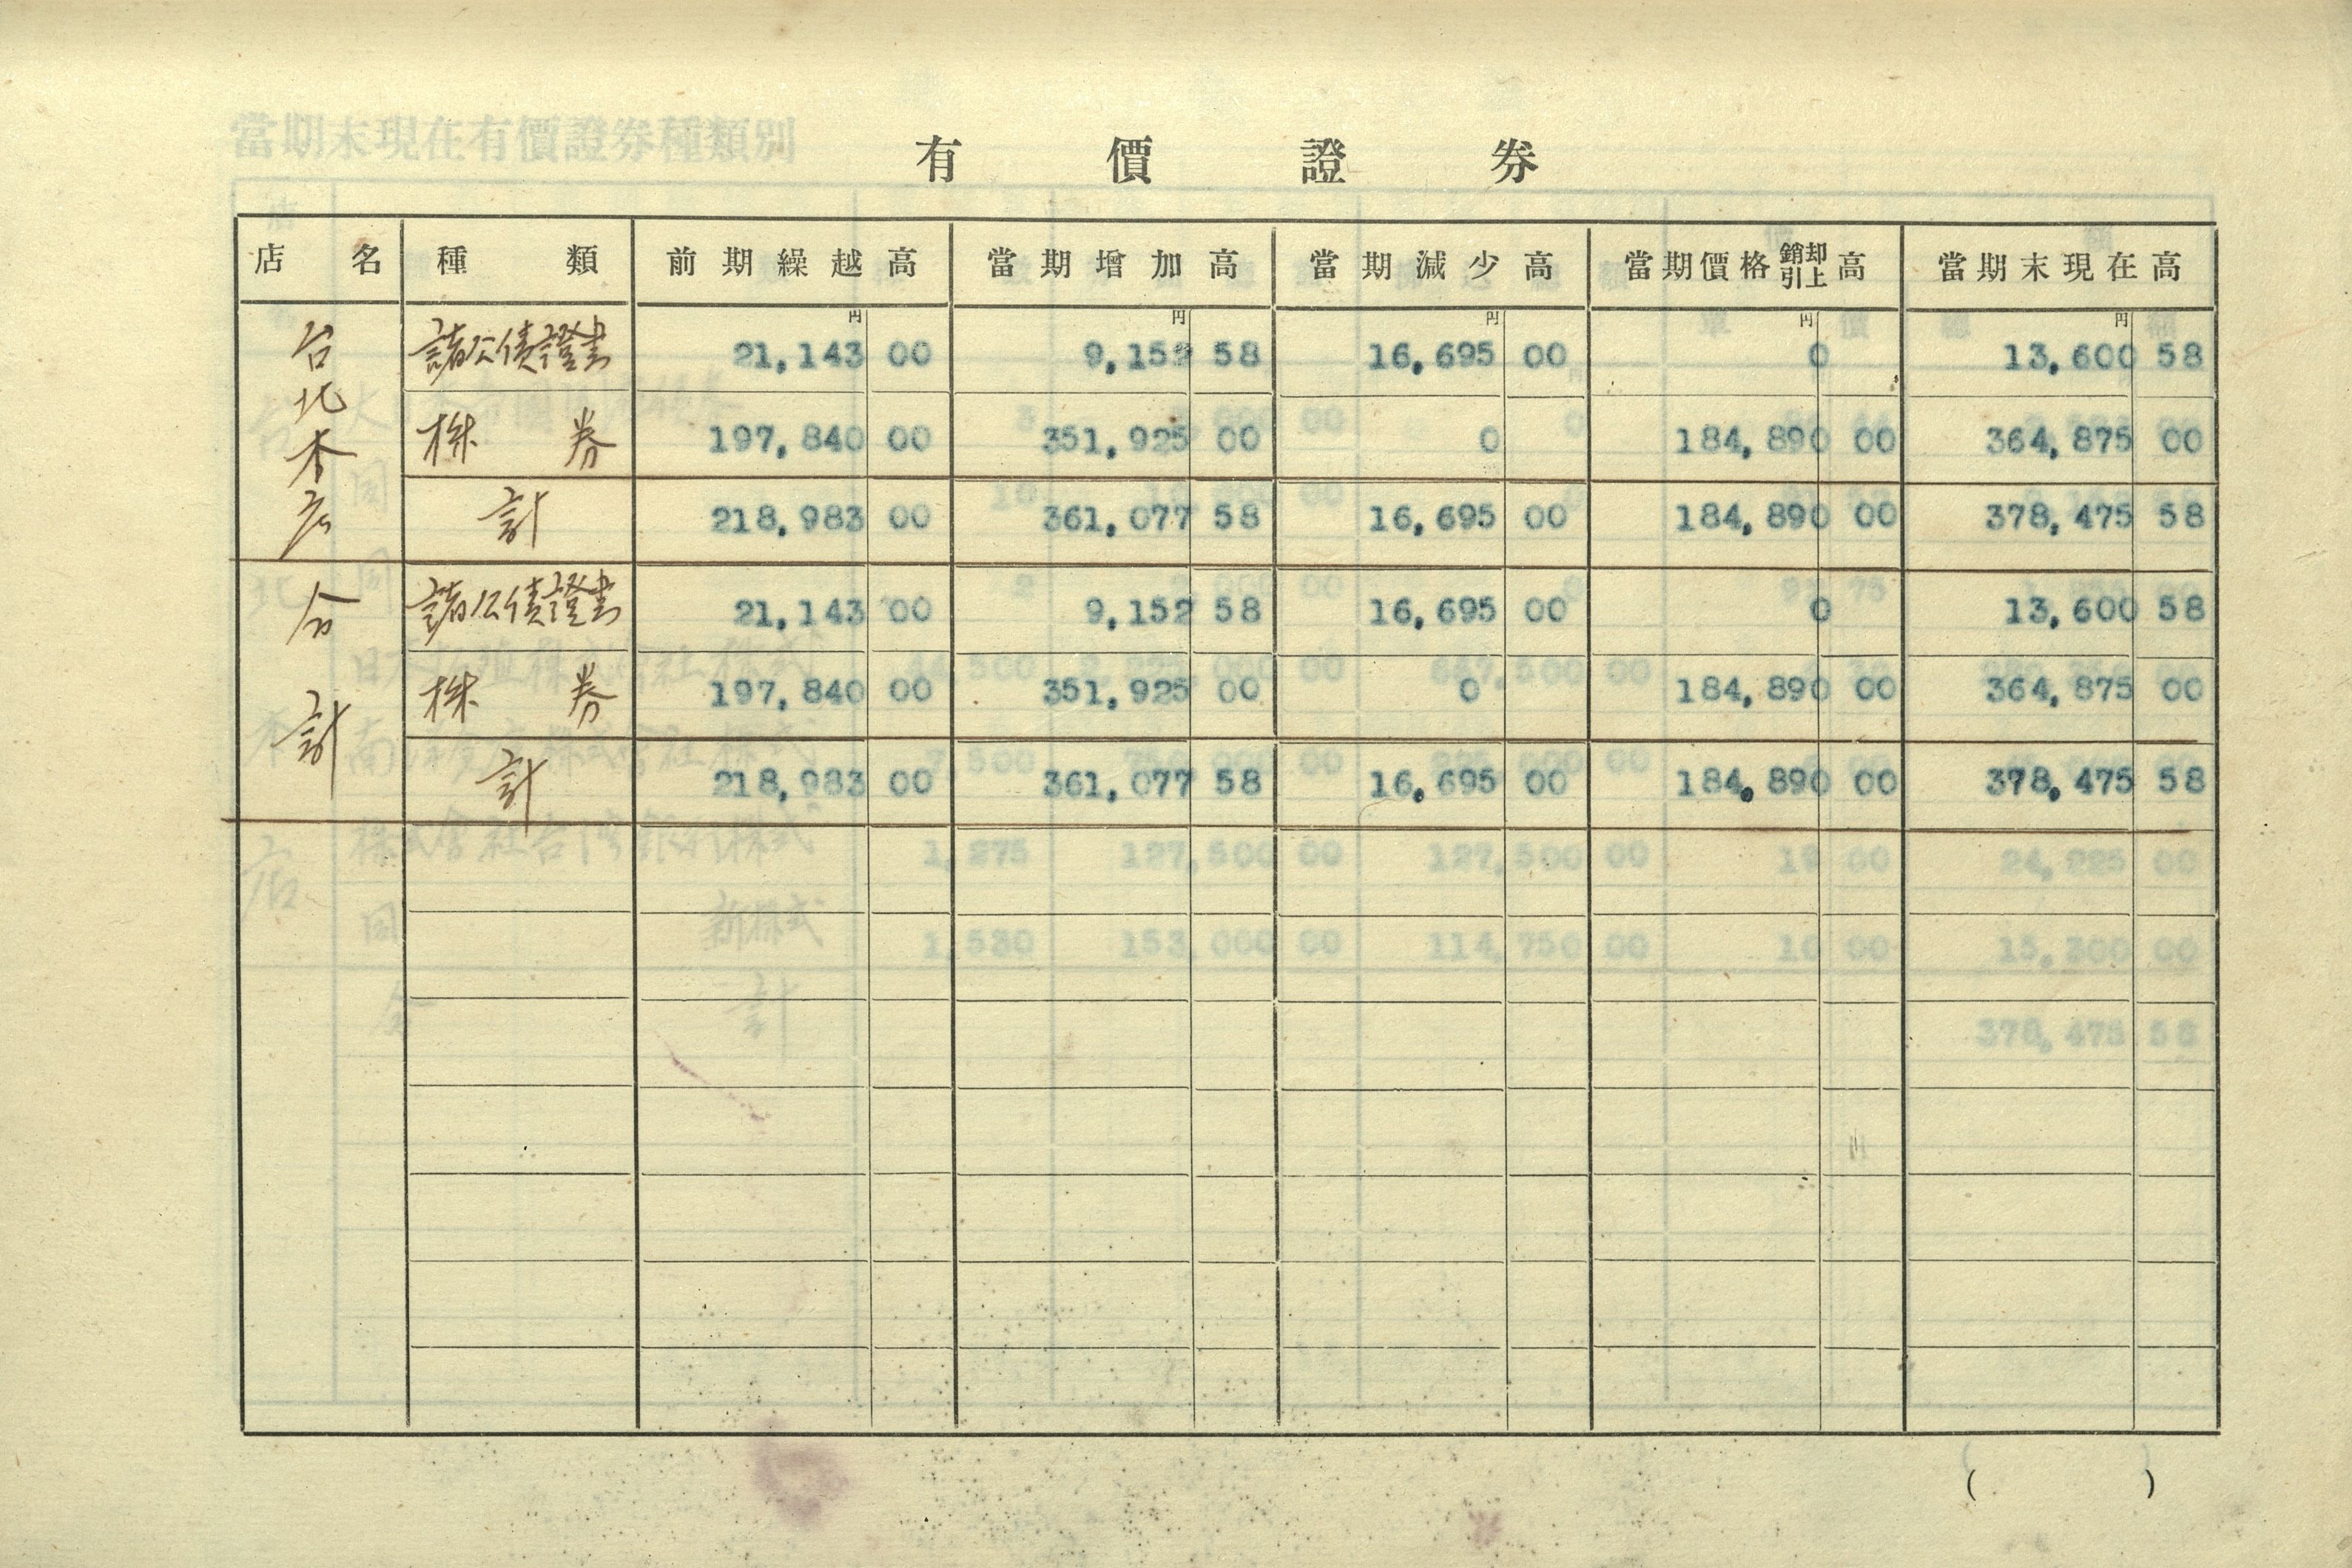 有價證券
店名 種類 前期繰越高 當期增加高 當期減少高 當期價格銷却引上高 當期末現在高
円 円 円 円 円
台北本店 諸公債證書 21,143 00 9,152 58 16,695 00 0 13,600 58
株券 197,840 00 351,925 00 0 184,890 00 364,875 00
計 218,983 00 361,077 58 16,695 00 184,890 00 378,475 58
合計 諸公債證書 21,143 00 9,152 58 16,695 00 0 13,600 58
株券 197,840 00 351,925 00 0 184,890 00 364,875 00
計 218,983 00 361,077 58 16,695 00 184,890 00 378,475 58
( )